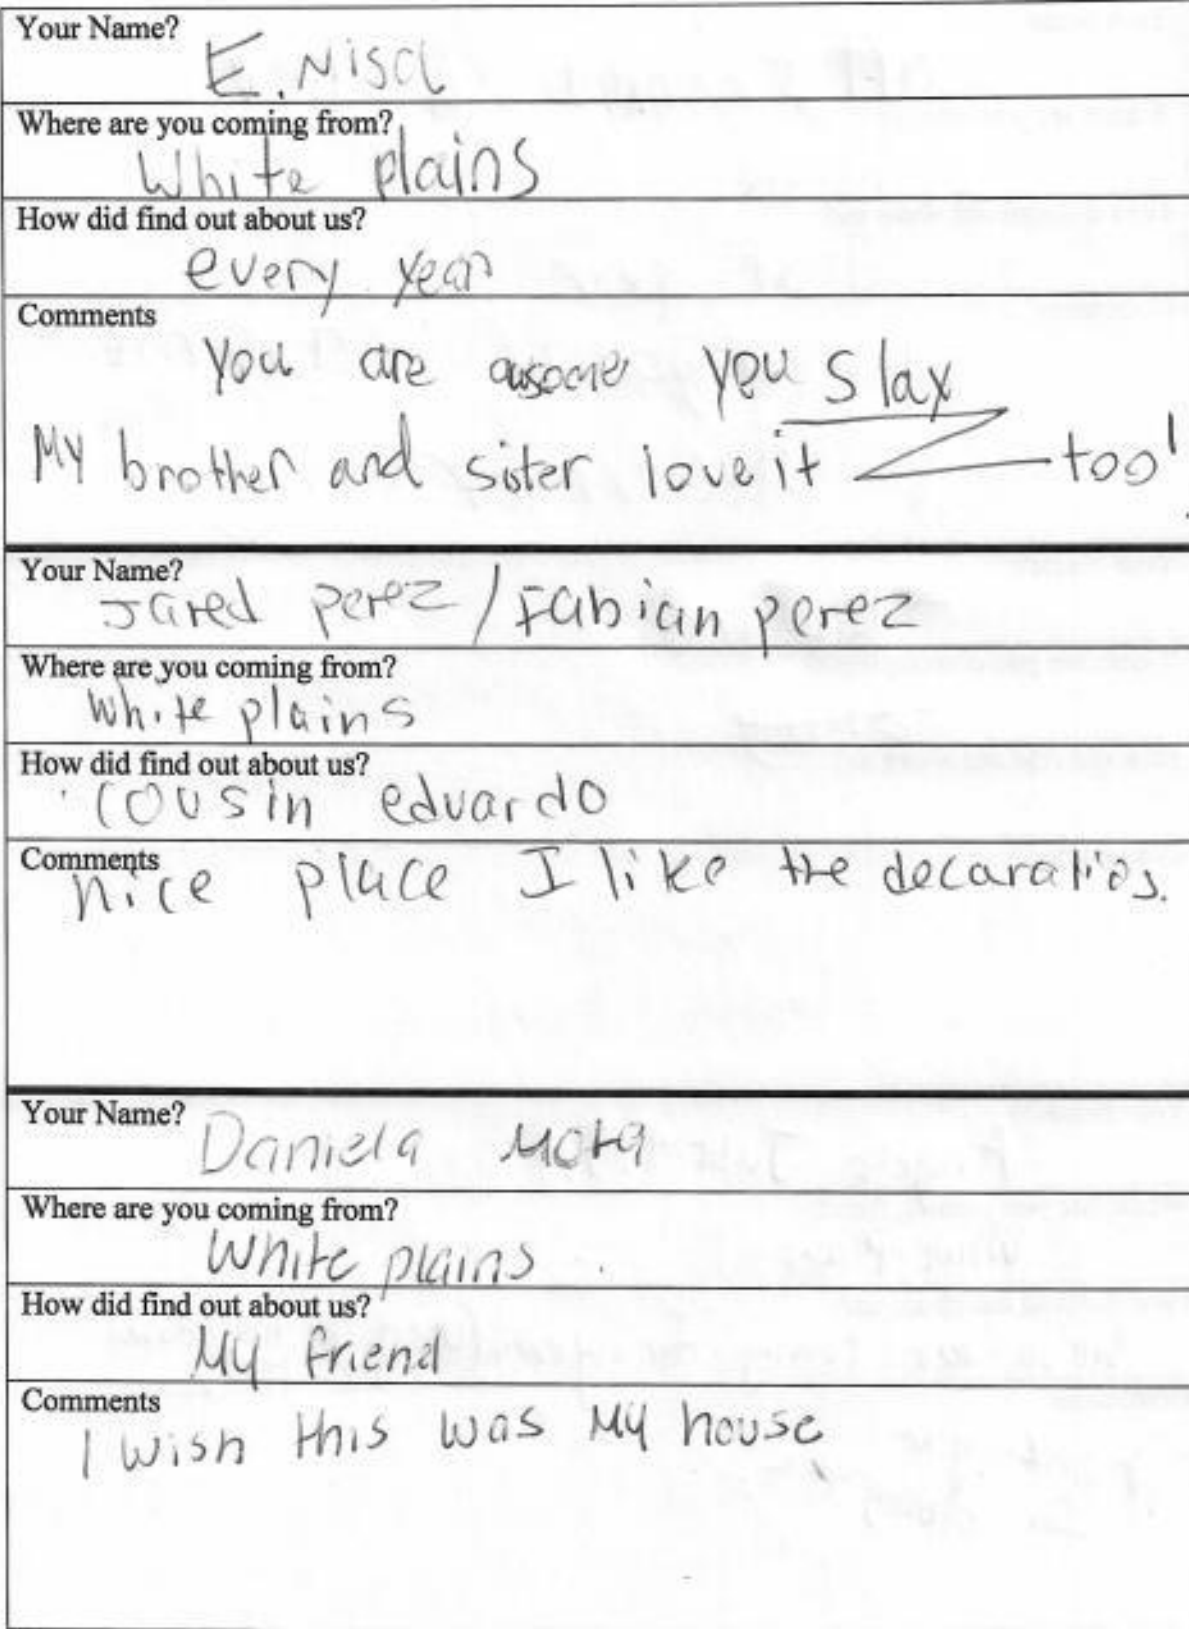 Your Name?
E. Nisa
Where are you coming from?
White plains
How did find out about us?
every year
Comments
You are you slay
My brother and sister love it too!
Your Name?
Jared perez / Fabian perez
Where are you coming from?
white plains
How did find out about us?
cousin eduardo
Comments
nice place I like the decaratios.
Your Name?
Daniela Mota
Where are you coming from?
White plains.
How did find out about us?
My friend
Comments
I wish this was My house